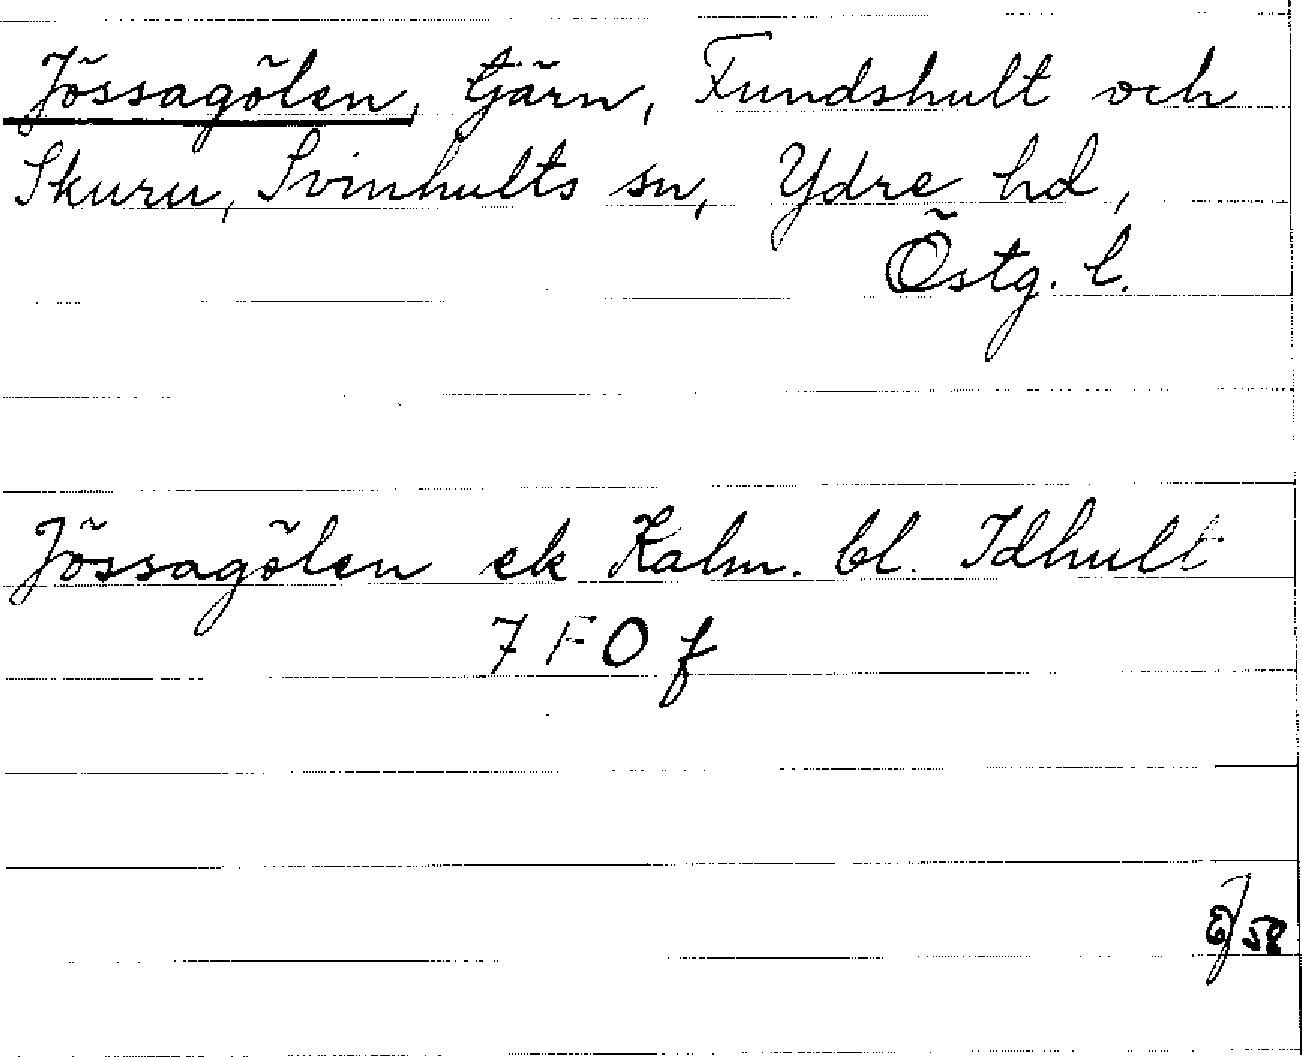 Jössagölen, tjärn, Fundshult och
Skuru, Svinhults sn, Ydre hd,
Östg. l.
Jössagölen ek Kalm. bl. Idhult
7 F O f
/58